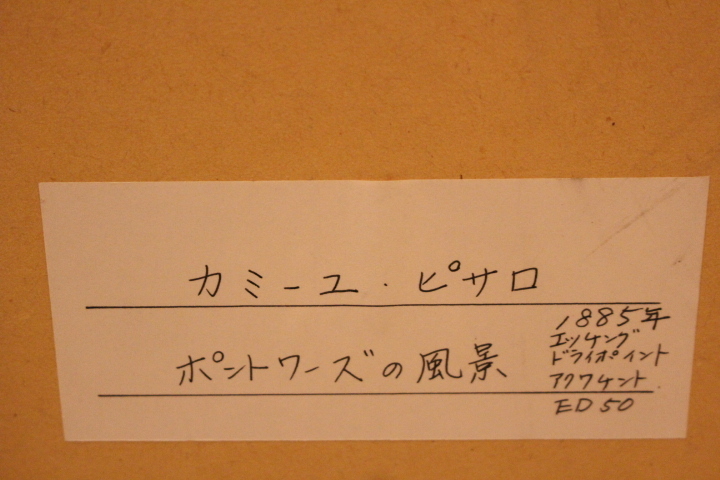 カミーユ・ピサロ
ポントワーズの風景
1885年
エッチング
ドライポイント
アクワチント
ED 50